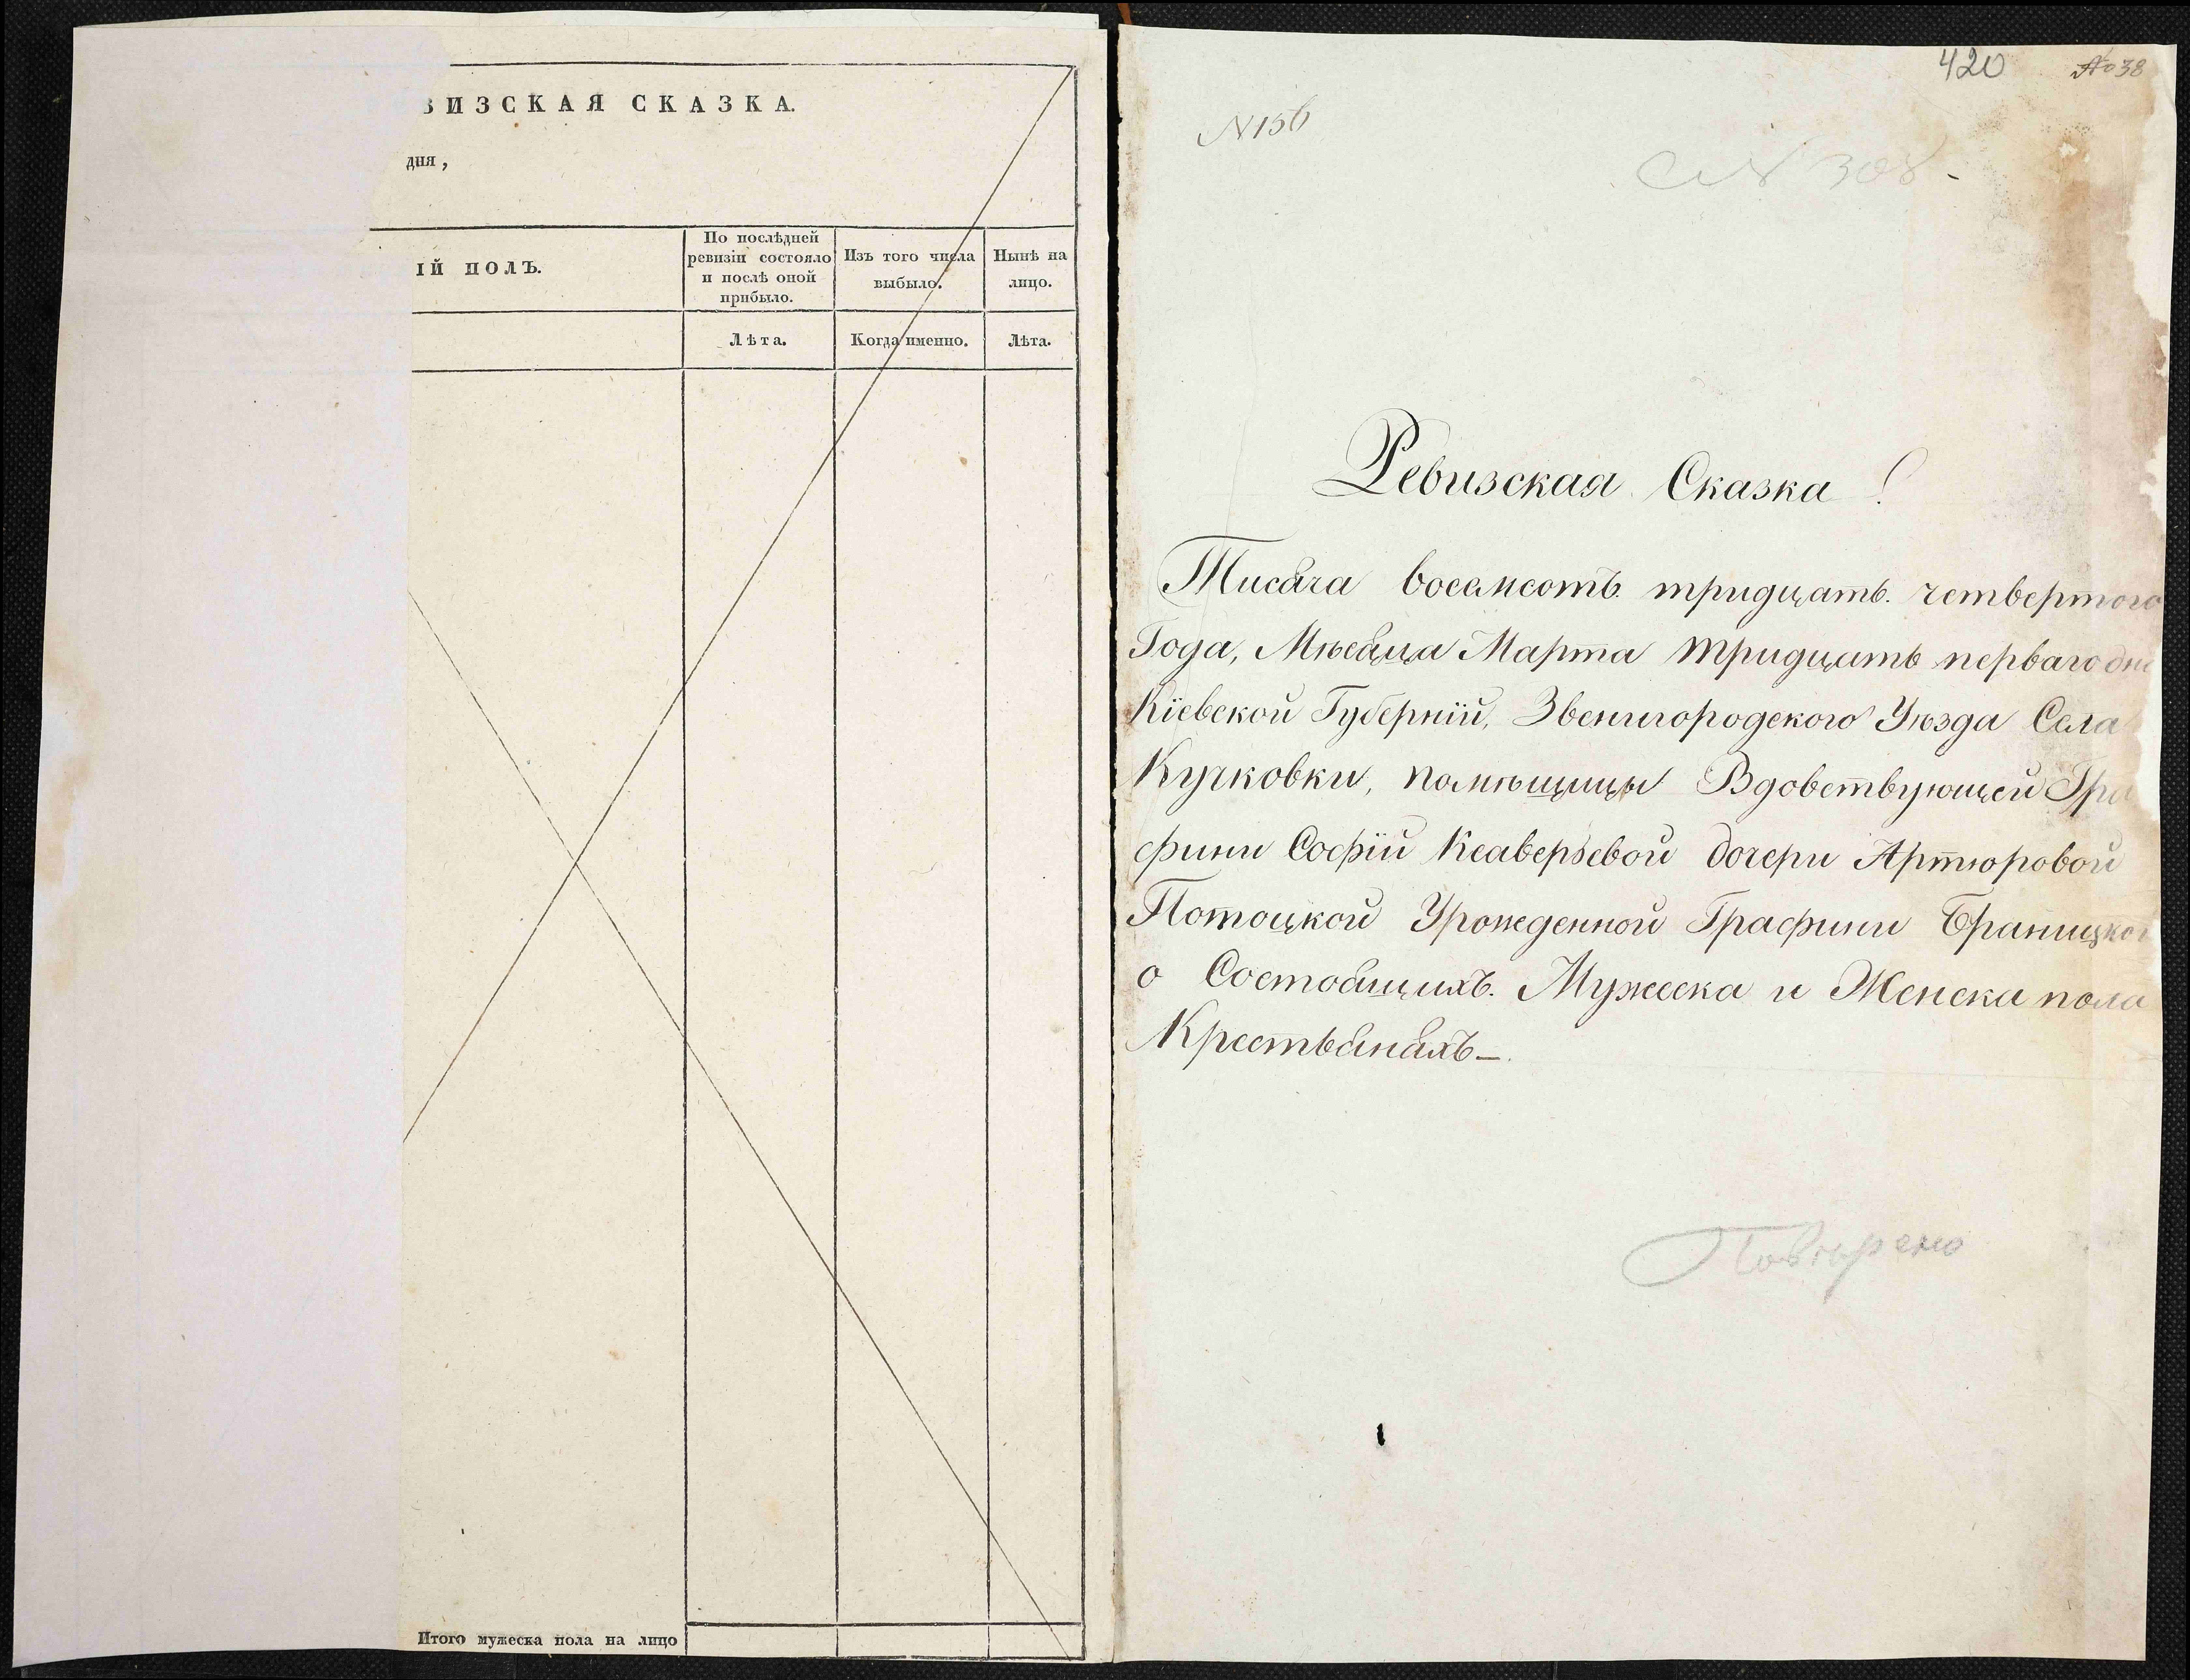 ВИЗСКАЯ СКАЗКА.
дня,
ІЙ ПОЛЪ.
По послѣдней
ревизіи состояло
и послѣ оной
прибыло.
Изъ того числа
выбыло.
Нынѣ на
лицо.
Лѣта.
Когда именно.
Лѣта.
Итого мужеска пола на лицо
420
№38
N156
№ 308.
Ревизская Сказка!
Тисяча восемсотъ тридцать четвертого
Года, Мѣсяца Марта тридцать перваго дня
Кіевской Губерніи, Звенигородского Уѣзда Села
Кучковки, помѣщицы Вдовствующей Гра
фини Софіи Ксаверьевой дочери Артюровой
Потоцкой Урожденной Графини Браницкой
о Состоящихъ Мужеска и Женска пола
Крестьянахъ—
Повѣрено